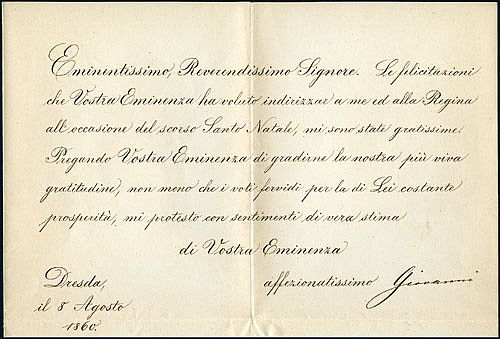 Eminentissimo, Reverendissimo Signore. Le felicitazioni
che Vostra Eminenza ha voluto indirizzar a me ed alla Regina
all'occasione del scorso Santo Natale, mi sono state gratissime.
Pregando Vostra Eminenza di gradirne la nostra più viva
gratitudine, non meno che i voti fervidi per la di Lei costante
prosperità, mi protesto con sentimenti di vera stima
di Vostra Eminenza
Dresda,
affezionatissimo Giovanni
il 8 Agosto
1860.